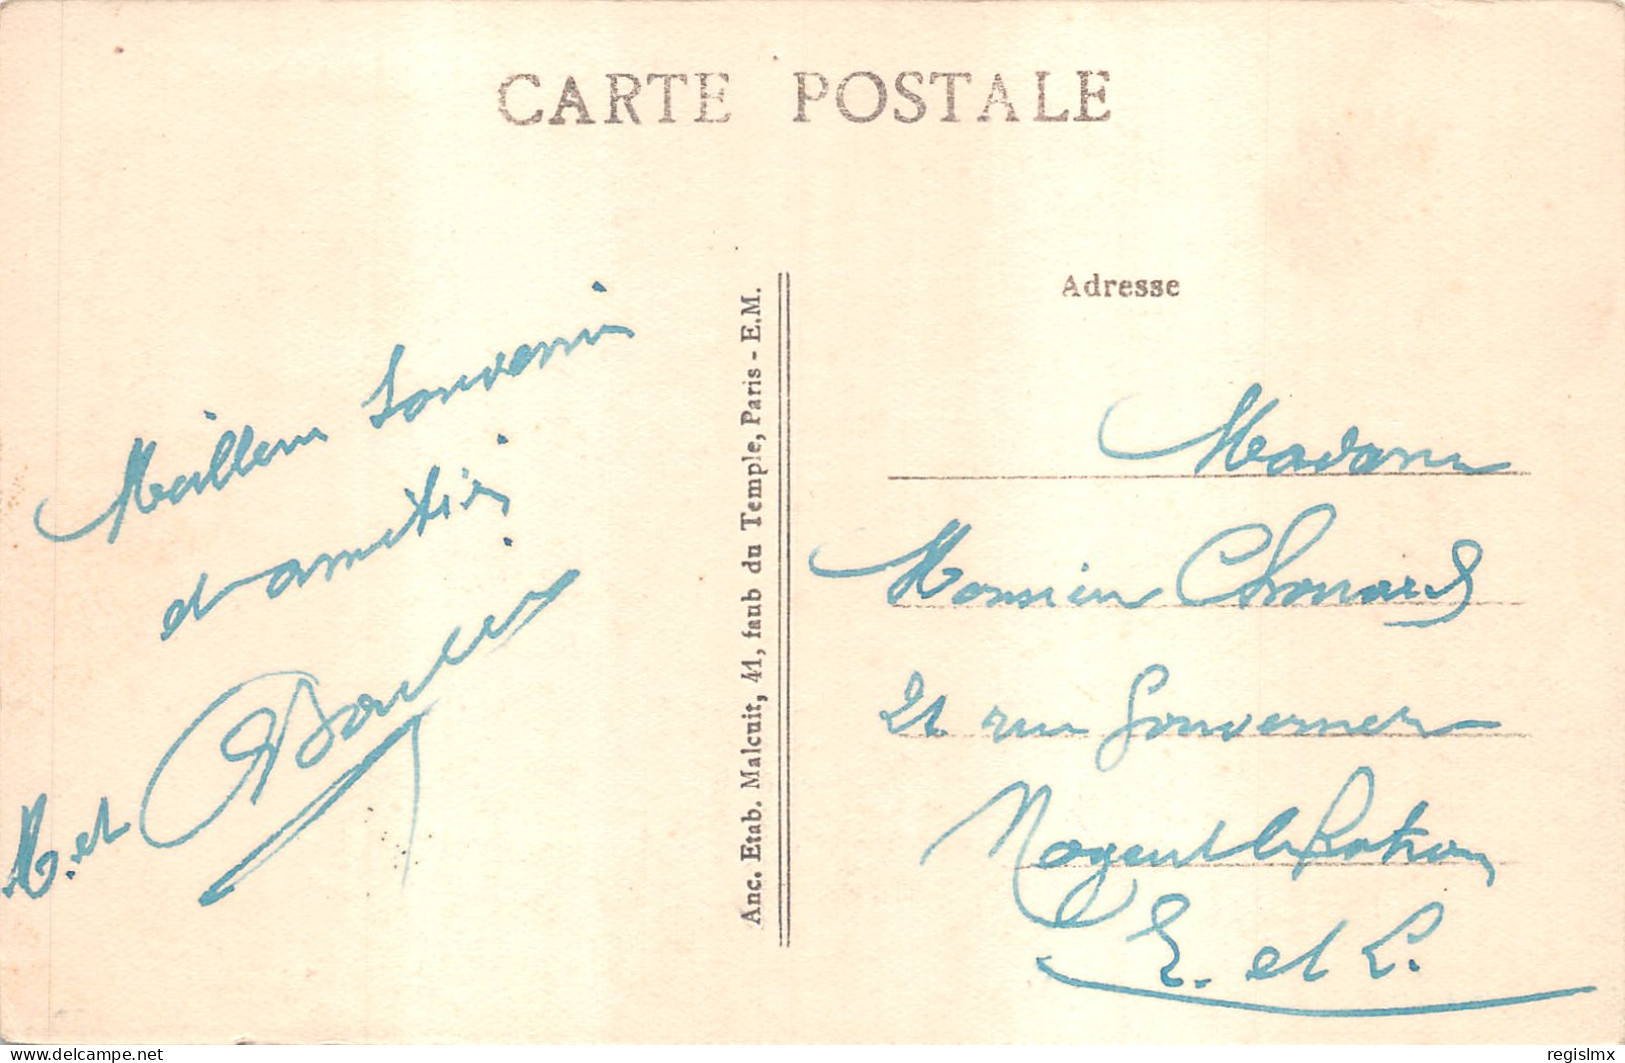 CARTE POSTALE
Meilleur Souvenir
d'amitié
M. et
Anc. Etab. Malcuit, 41, faub du Temple, Paris - E.M.
Adresse
Madame
Monsieur Chouard
21 rue Gouverneur
Nogent le Rotrou
E. et L.
delcampe.net
regislmx